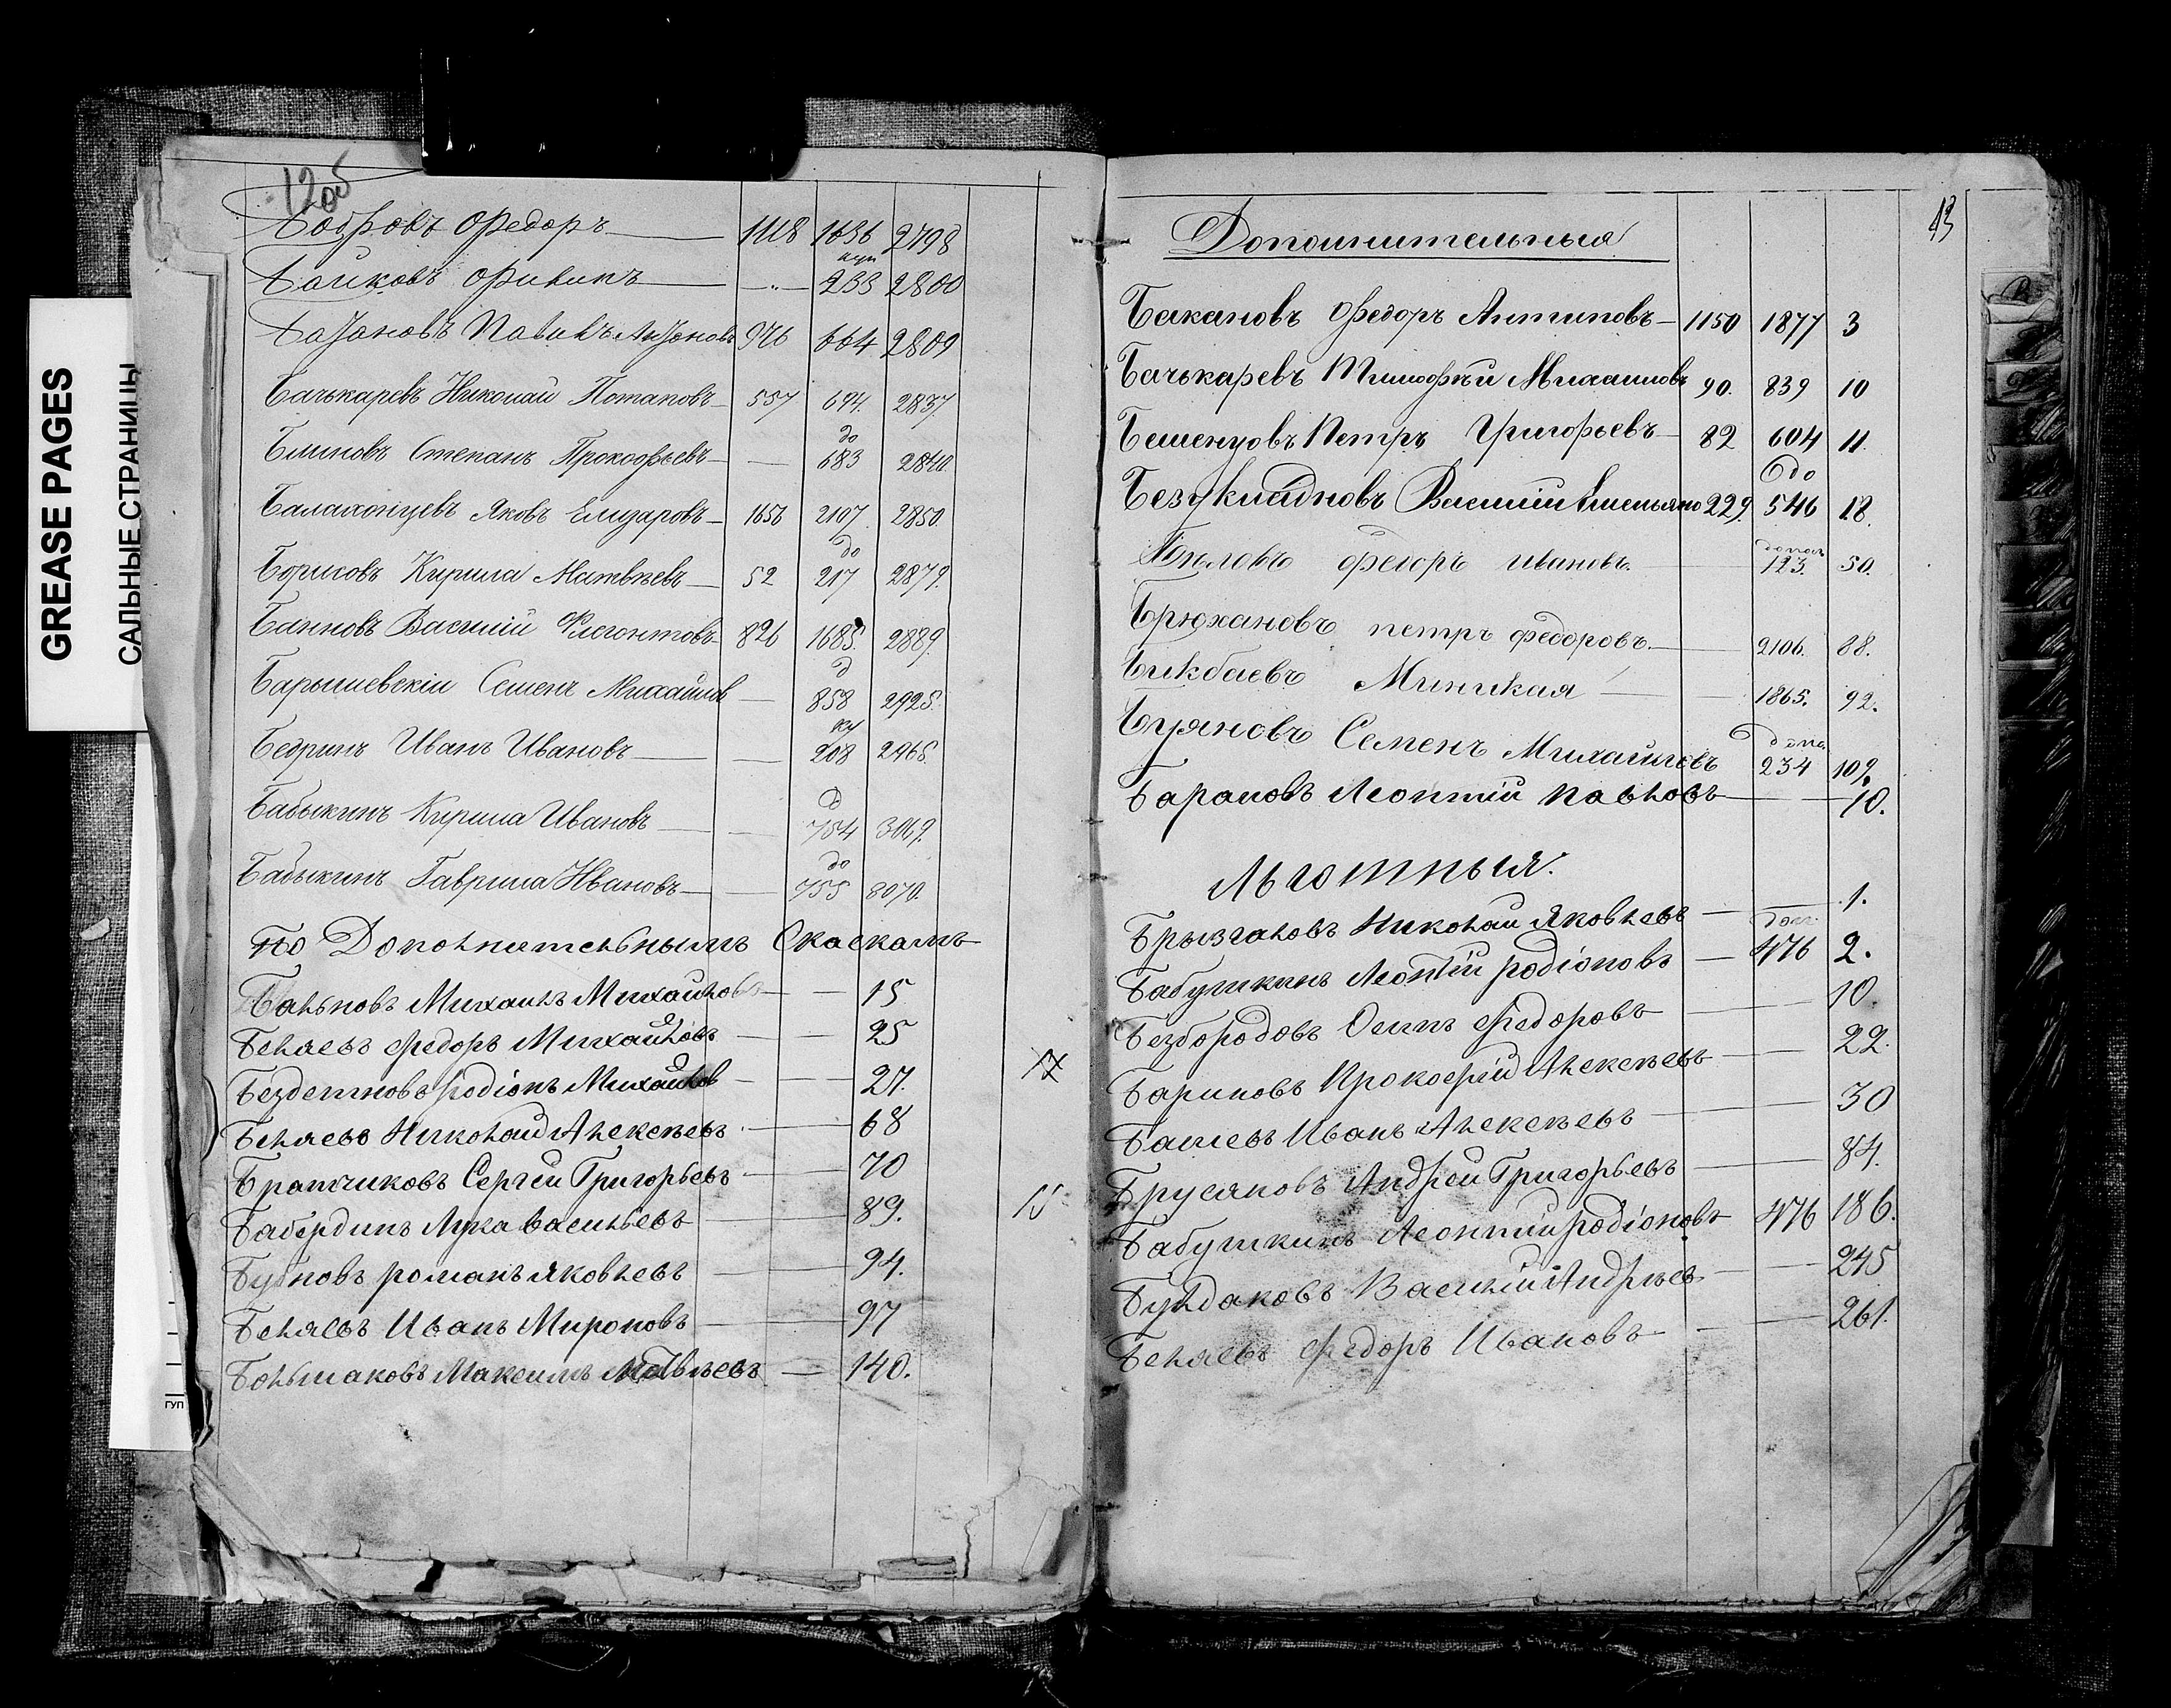 GREASE PAGES
САЛЬНЫЕ СТРАНИЦЫ
ГУП
12об
Бобровъ Федоръ 1118 1636 2798
куп
Байковъ Филипъ — 233 2800
Базановъ Павилъ 976 664 2809
Бачькаревъ Николай Потаповъ 557 694 2837
до
Блиновъ Степанъ Прокофьевъ — 683 2840
Балахонцевъ Яковъ Елизаровъ 1656 2107 2850
до
Борисовъ Кирила Матвѣевъ 52 217 2879
Баиновъ Василій Флегонтовъ 826 1685 2889
д
Барышевскій Семенъ Михайлов — 858 2925
ку
Бедринъ Иванъ Ивановъ — 208 2965
д
Бабыкинъ Кирила Ивановъ — 754 3069
до
Бабыкинъ Гаврила Ивановъ — 755 3070
По Дополнительнымъ Скаскамъ
Михаилъ Михайловъ — 15
Беляевъ Федоръ Михайловъ — 25
Бездетновъ Родіонъ Михайлов — 27.
Беляевъ Николай Алексѣевъ — 68
Братчиковъ Сергей Григорьевъ — 70
Бабердинъ Лука Васильевъ — 89.
романъ яковлевъ — 94.
Беляевъ Иванъ Мироновъ — 97
Большаковъ Максимъ Матвѣевъ — 140.
13
Дополнительныя
Бакановъ Федоръ Антиповъ 1150 1877 3
Бачькаревъ Тимофѣй Михаиловъ 90. 839 10
Бешенцовъ Петръ Григорьевъ 82 604 11.
до
Безукладновъ Василій Емельяно 229. 546 18.
допол
федоръ ивановъ. 123. 50.
Брюхановъ петръ федоровъ. — 2106. 88.
Бикбаевъ — 1865. 92.
допо
Буяновъ Семенъ Михайловъ 234 109.
Барановъ Леонтій Павловъ — 10.
Льготныя.
Брызгаловъ Николай Яковлевъ — 1.
доп.
Бабушкинъ Леонтій родіоновъ — 476 2.
Безбородовъ Осипъ Федоровъ — 10
Бариновъ Прокофій Алексѣевъ — 22.
Иванъ Алексѣевъ — 30
Брусяновъ Андрей Григорьевъ — 84.
Бабушкинъ Леонтій родіоновъ 476 186.
Булдаковъ Василій Андрѣев — 245
Беляевъ Федоръ Ивановъ — 261.